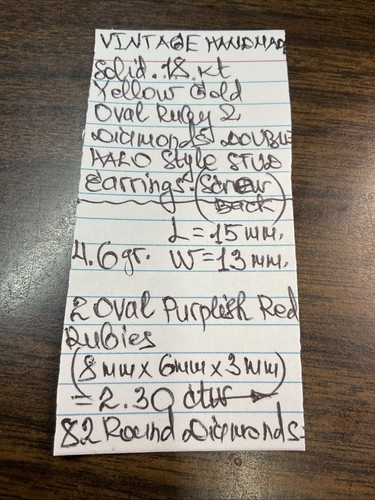 VINTAGE HANDMAD
Solid. 18. kt
Yellow Gold
Oval Ruby &
Diamonds DOUBLE
HALO Style STUD
Earrings. (Screw
Back)
L = 15 mm.
4.6gr. W = 13 mm.
2 Oval Purplish Red
Rubies
(8mm x 6mm x 3mm)
= 2.30 ctw
82 Round Diamonds=